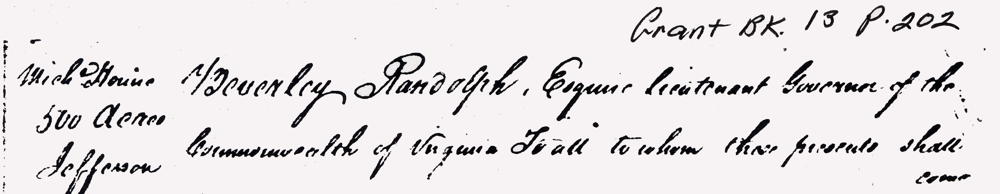 Grant BK. 13 P. 202
Mich.l Horine
500 Acres
Jefferson
Beverley Randolph, Esquire lieutenant Governor of the
Commonwealth of Virginia To all to whom these presents shall
come